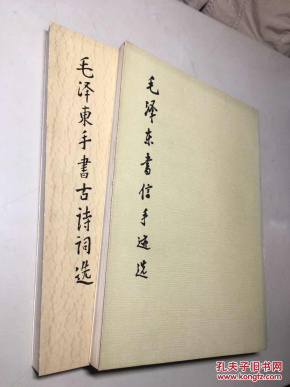 毛泽東手書古詩詞选
毛泽东書信手迹选
孔夫子旧书网